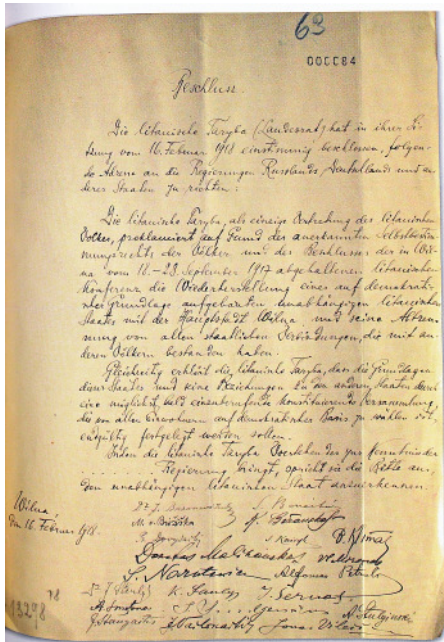 63
000084
Beschluss.
Die litauische Taryba (Landesrat) hat in ihrer Sit-
zung vom 16. Februar 1918 einstimmig beschlossen, folgen-
de Adresse an die Regierungen Russlands, Deutschlands und an-
derer Staaten zu richten:
Die litauische Taryba, als einzige Vertretung des litauischen
Volkes, proklamiert auf Grund des anerkannten Selbstbestim-
mungsrechts der Völker und des Beschlusses der in Wil-
na vom 18.-23. September 1917 abgehaltenen litauischen
Konferenz die Wiederherstellung eines auf demokrati-
scher Grundlage aufgebauten unabhängigen litauischen
Staates mit der Hauptstadt Wilna und seine Abtren-
nung von allen staatlichen Verbindungen, die mit an-
deren Völkern bestanden haben.
Gleichzeitig erklärt die litauische Taryba, dass die Grundlagen
dieses Staates und seine Beziehungen zu den anderen Staaten durch
eine möglichst bald einzuberufende konstituierende Versammlung,
die von allen Einwohnern auf demokratischer Basis zu wählen ist,
endgültig festgelegt werden sollen.
Indem die litauische Taryba Vorstehendes zur Kenntnis der
. . . . . . . . Regierung bringt, spricht sie die Bitte aus,
den unabhängigen litauischen Staat anzuerkennen.
Wilna
den 16. Februar 1918.
Dr J. Basanavičius S. Banaitis
M. Biržiška
Donatas Malinauskas
S. Narutavičius Alfonsas Petrulis
K. Šaulys J. Šernas
A. Smetona A. Stulginski
J. Staugaitis Jonas Vilei
78